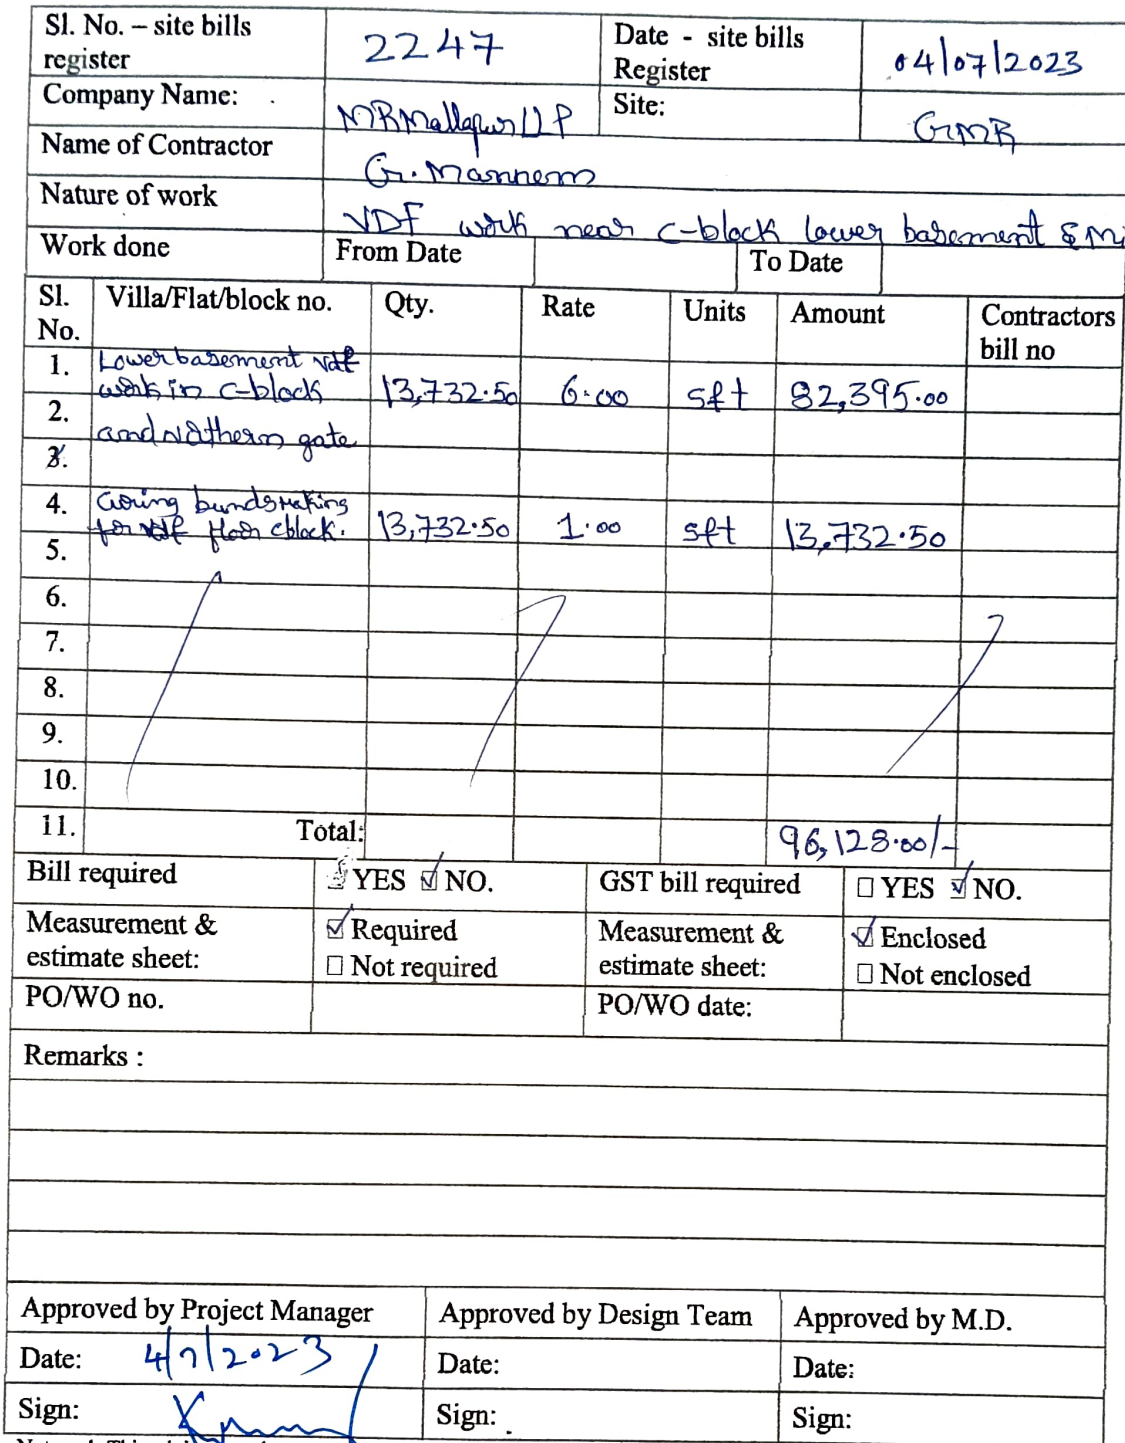 Sl. No. – site bills register 2247 Date - site bills Register 04/07/2023
Company Name: MRMallapur LLP Site: GMR
Name of Contractor G. Mannem
Nature of work VDF work near C-block lower basement &
Work done From Date To Date
Sl. No. Villa/Flat/block no. Qty. Rate Units Amount Contractors bill no
1. Lower basement vdf
work in C-block 13,732.50 6.00 sft 82,395.00
2. and Nothern gate
3.
4. Curing bunds making
for vdf floor cblock. 13,732.50 1.00 sft 13,732.50
5.
6.
7.
8.
9.
10.
11. Total: 96,128.00/-
Bill required YES ☑ NO. GST bill required ☐ YES ☑ NO.
Measurement & estimate sheet: ☑ Required ☐ Not required Measurement & estimate sheet: ☑ Enclosed ☐ Not enclosed
PO/WO no. PO/WO date:
Remarks :
Approved by Project Manager Approved by Design Team Approved by M.D.
Date: 4/7/2023 Date: Date:
Sign: Sign: Sign: